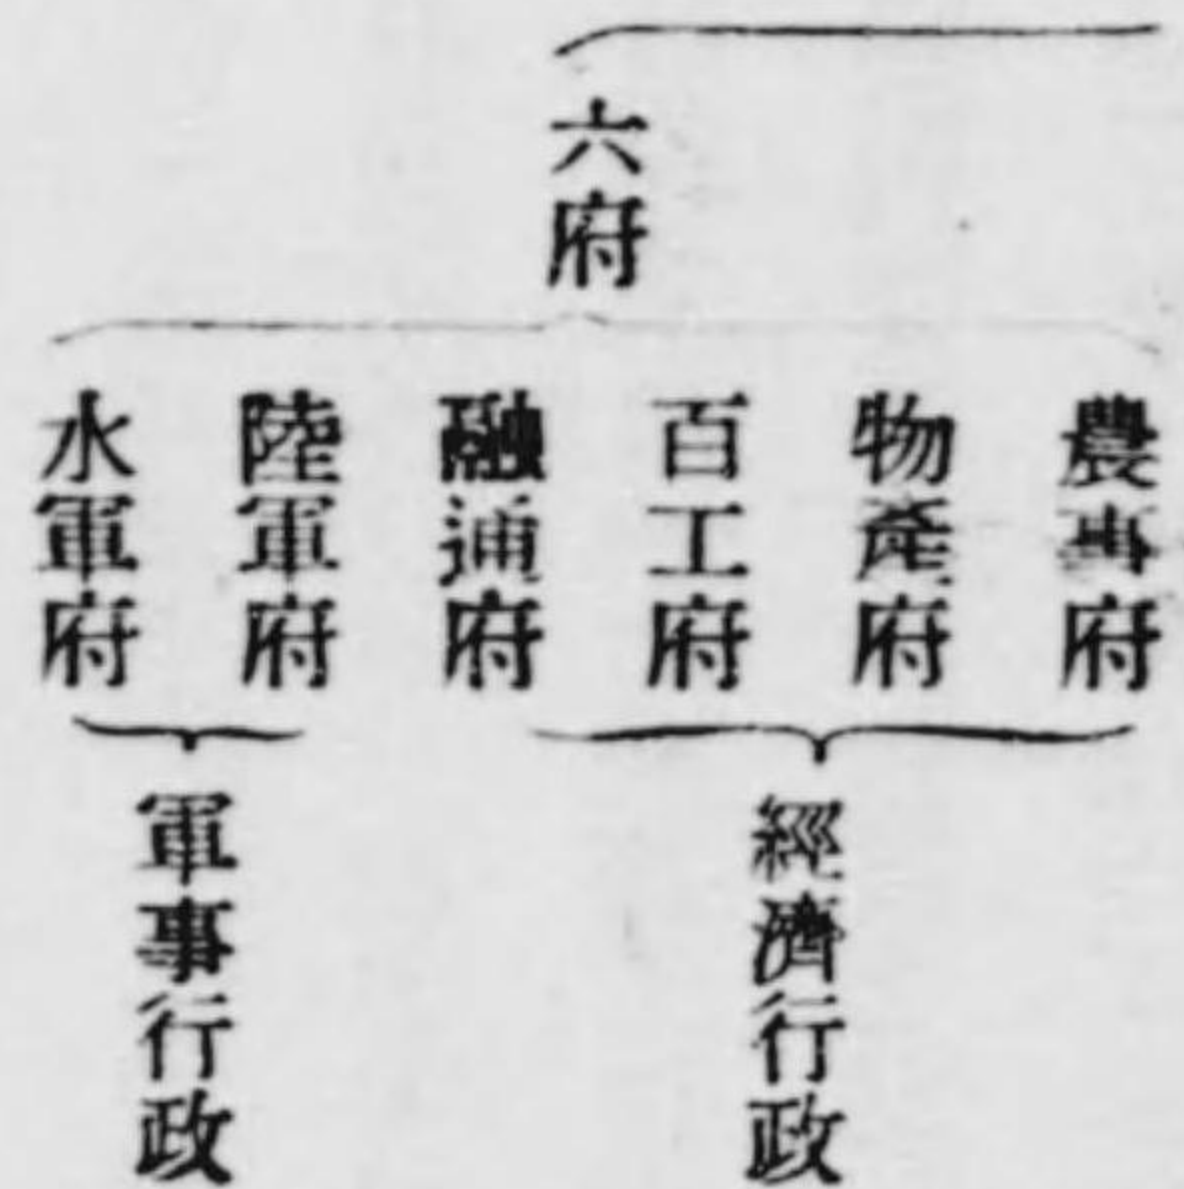 六府
農事府
物產府
百工府
融通府
陸軍府
水軍府
經濟行政
軍事行政